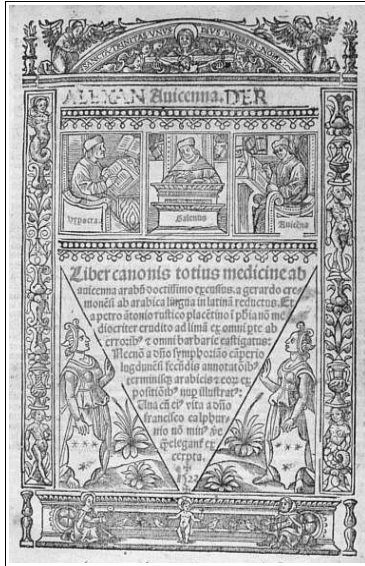 TRINITAS VNVS DEUS MISERERE NOB
Auicenna. DER
Galenus
Auicēna
Liber canonis totius medicine ab
auicenna arabū doctissimo excussus. a gerardo cre
monēsi ab arabica lingua in latinā reductus. Et
a petro ātonio rustico placētino ī phia nō me
diocriter erudito ad limā ex omni pte ab
erroribꝰ ⁊ omni barbarie castigatus:
Necnō a dño symphoriāo cāperio
lugdunēsi fecūdis annotatōibꝰ
terminisqꝫ arabicis ⁊ eoꝝ ex
positiōibꝰ nup illustratꝰ:
Una cū eiꝰ vita a dño
francisco calphur
nio nō minꝰ
eleganť ex
cerpta.
1522